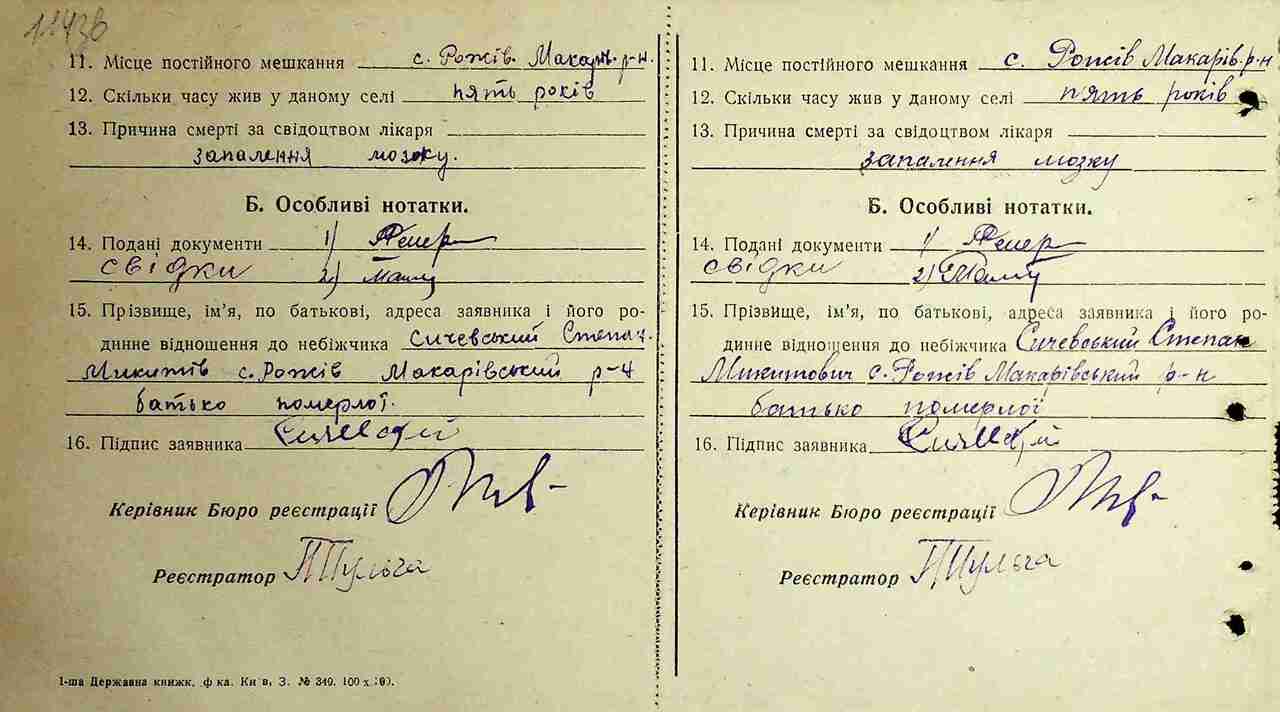 11. Місце постійного мешкання с. Рожів. Макар. р-н.
12. Скільки часу жив у даному селі пять років
13. Причина смерті за свідоцтвом лікаря
запалення мозку.
Б. Особливі нотатки.
14. Подані документи 1)
свідки 2)
15. Прізвище, ім'я, по батькові, адреса заявника і його ро-
динне відношення до небіжчика Сичевський Степан
Микитов с. Рожів Макарівський р-н
батько померлої.
16. Підпис заявника
Керівник Бюро реєстрації
Реєстратор
1-ша Державна книжк. ф-ка. Київ, З. № 349.
11. Місце постійного мешкання с. Рожів Макарів. р-н
12. Скільки часу жив у даному селі пять років
13. Причина смерті за свідоцтвом лікаря
запалення мозку
Б. Особливі нотатки.
14. Подані документи 1)
свідки 2)
15. Прізвище, ім'я, по батькові, адреса заявника і його ро-
динне відношення до небіжчика Сичевський Степан
Микитович с. Рожів Макарівський р-н
батько померлої
16. Підпис заявника
Керівник Бюро реєстрації
Реєстратор